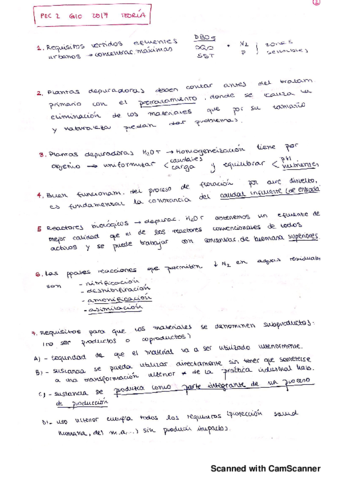 PEC 2 GIO 2019 TEORÍA
1. Requisitos vertidos efluentes
urbanos → concentrac máximas
DBO5
DQO
SST
+ N2
P
zonas
sensibles
2. Plantas depuradoras deben contar antes del tratam
primario con el pretratamiento, donde se realiza la
eliminación de los materiales que por su tamaño
y naturaleza puedan dar problemas.
3. Plantas depuradoras H2Or → homogeneización tiene por
objetivo → uniformizar caudales
carga y equilibrar pH
nutrientes
4. Buen funcionam. del proceso de flotación por aire disuelto,
es fundamental la constancia del caudal influente (de entrada
5 Reactores biológicos → depurac. H2Or obtenemos un efluente de
mejor calidad que el de los reactores convencionales de lodos
activos y se puede trabajar con concentrac de biomasa superiores
6. Las ppales reacciones que permiten ↓ N2 en aguas residuales
son - nitrificación
- desnitrificación
- amonificación
- asimilación
9. Requisitos para que los materiales se denominen subproductos:
(no ser productos o coproductos)
A) - seguridad de que el material va a ser utilizado ulteriormente.
B) - sustancia se pueda utilizar directamente sin tener que someterse
a una transformación ulterior de la práctica industrial hab.
C) - sustancia se produzca como parte integrante de un proceso
de producción
D) - uso ulterior cumpla todos los requisitos (protección salud
humana, del m.a...) sin producir impactos.
Scanned with CamScanner